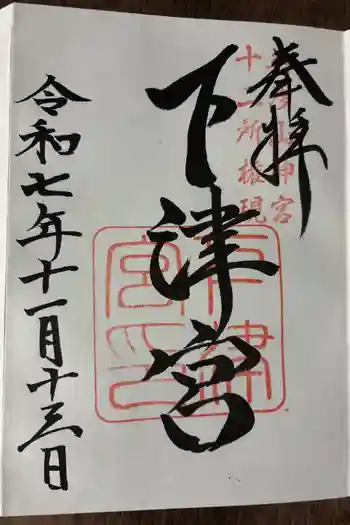 奉拝
十二所権現
下津宮
下津宮印
令和七年十一月十三日